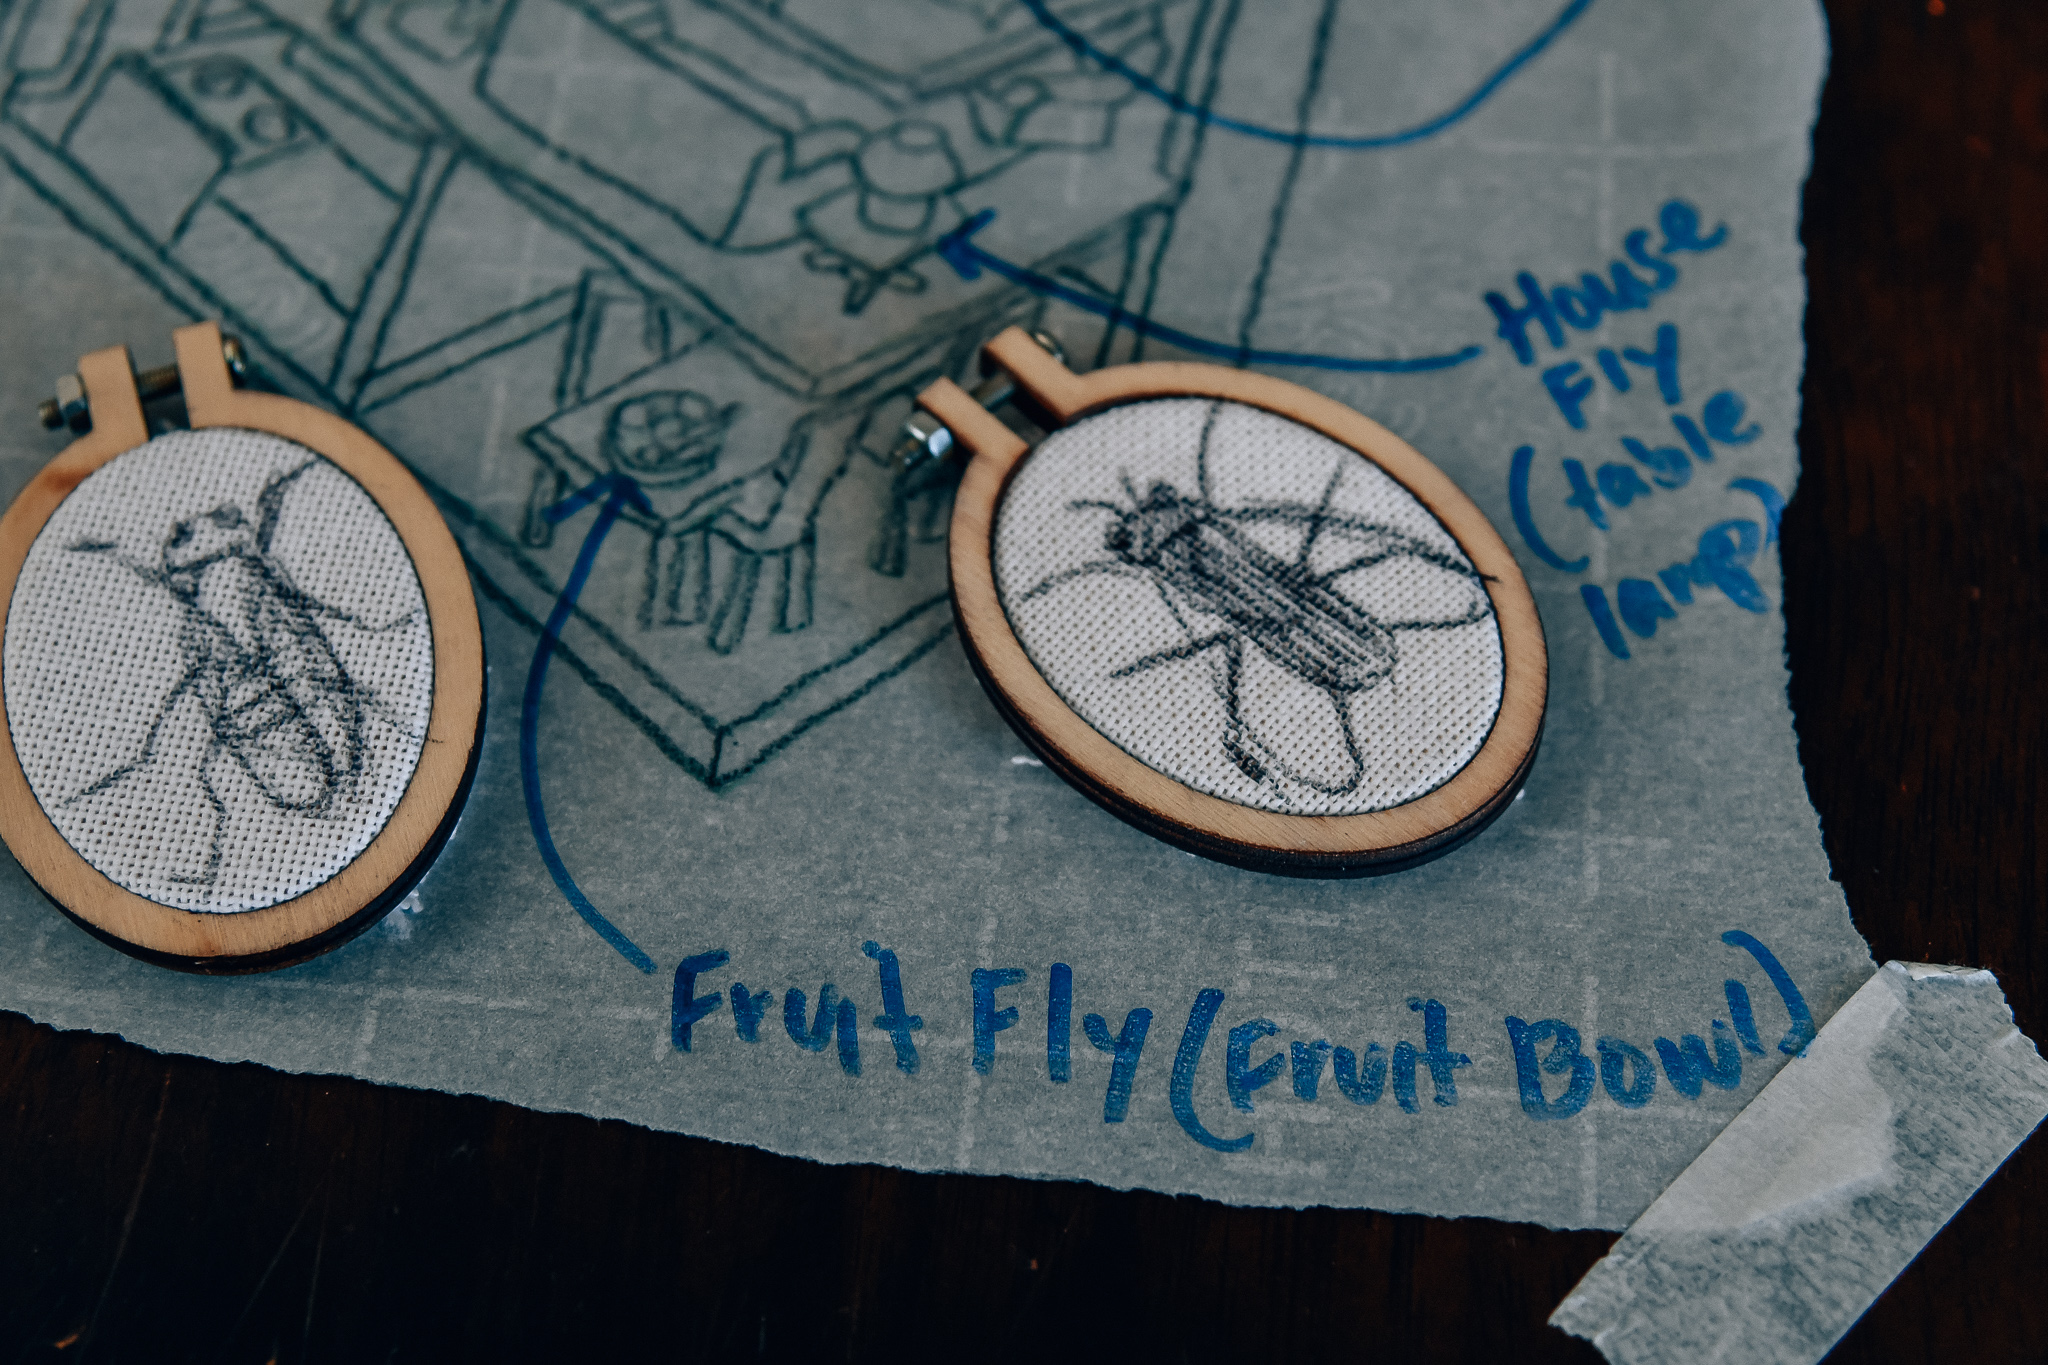 House
Fly
(table
lamp)
Fruit Fly (Fruit Bowl)